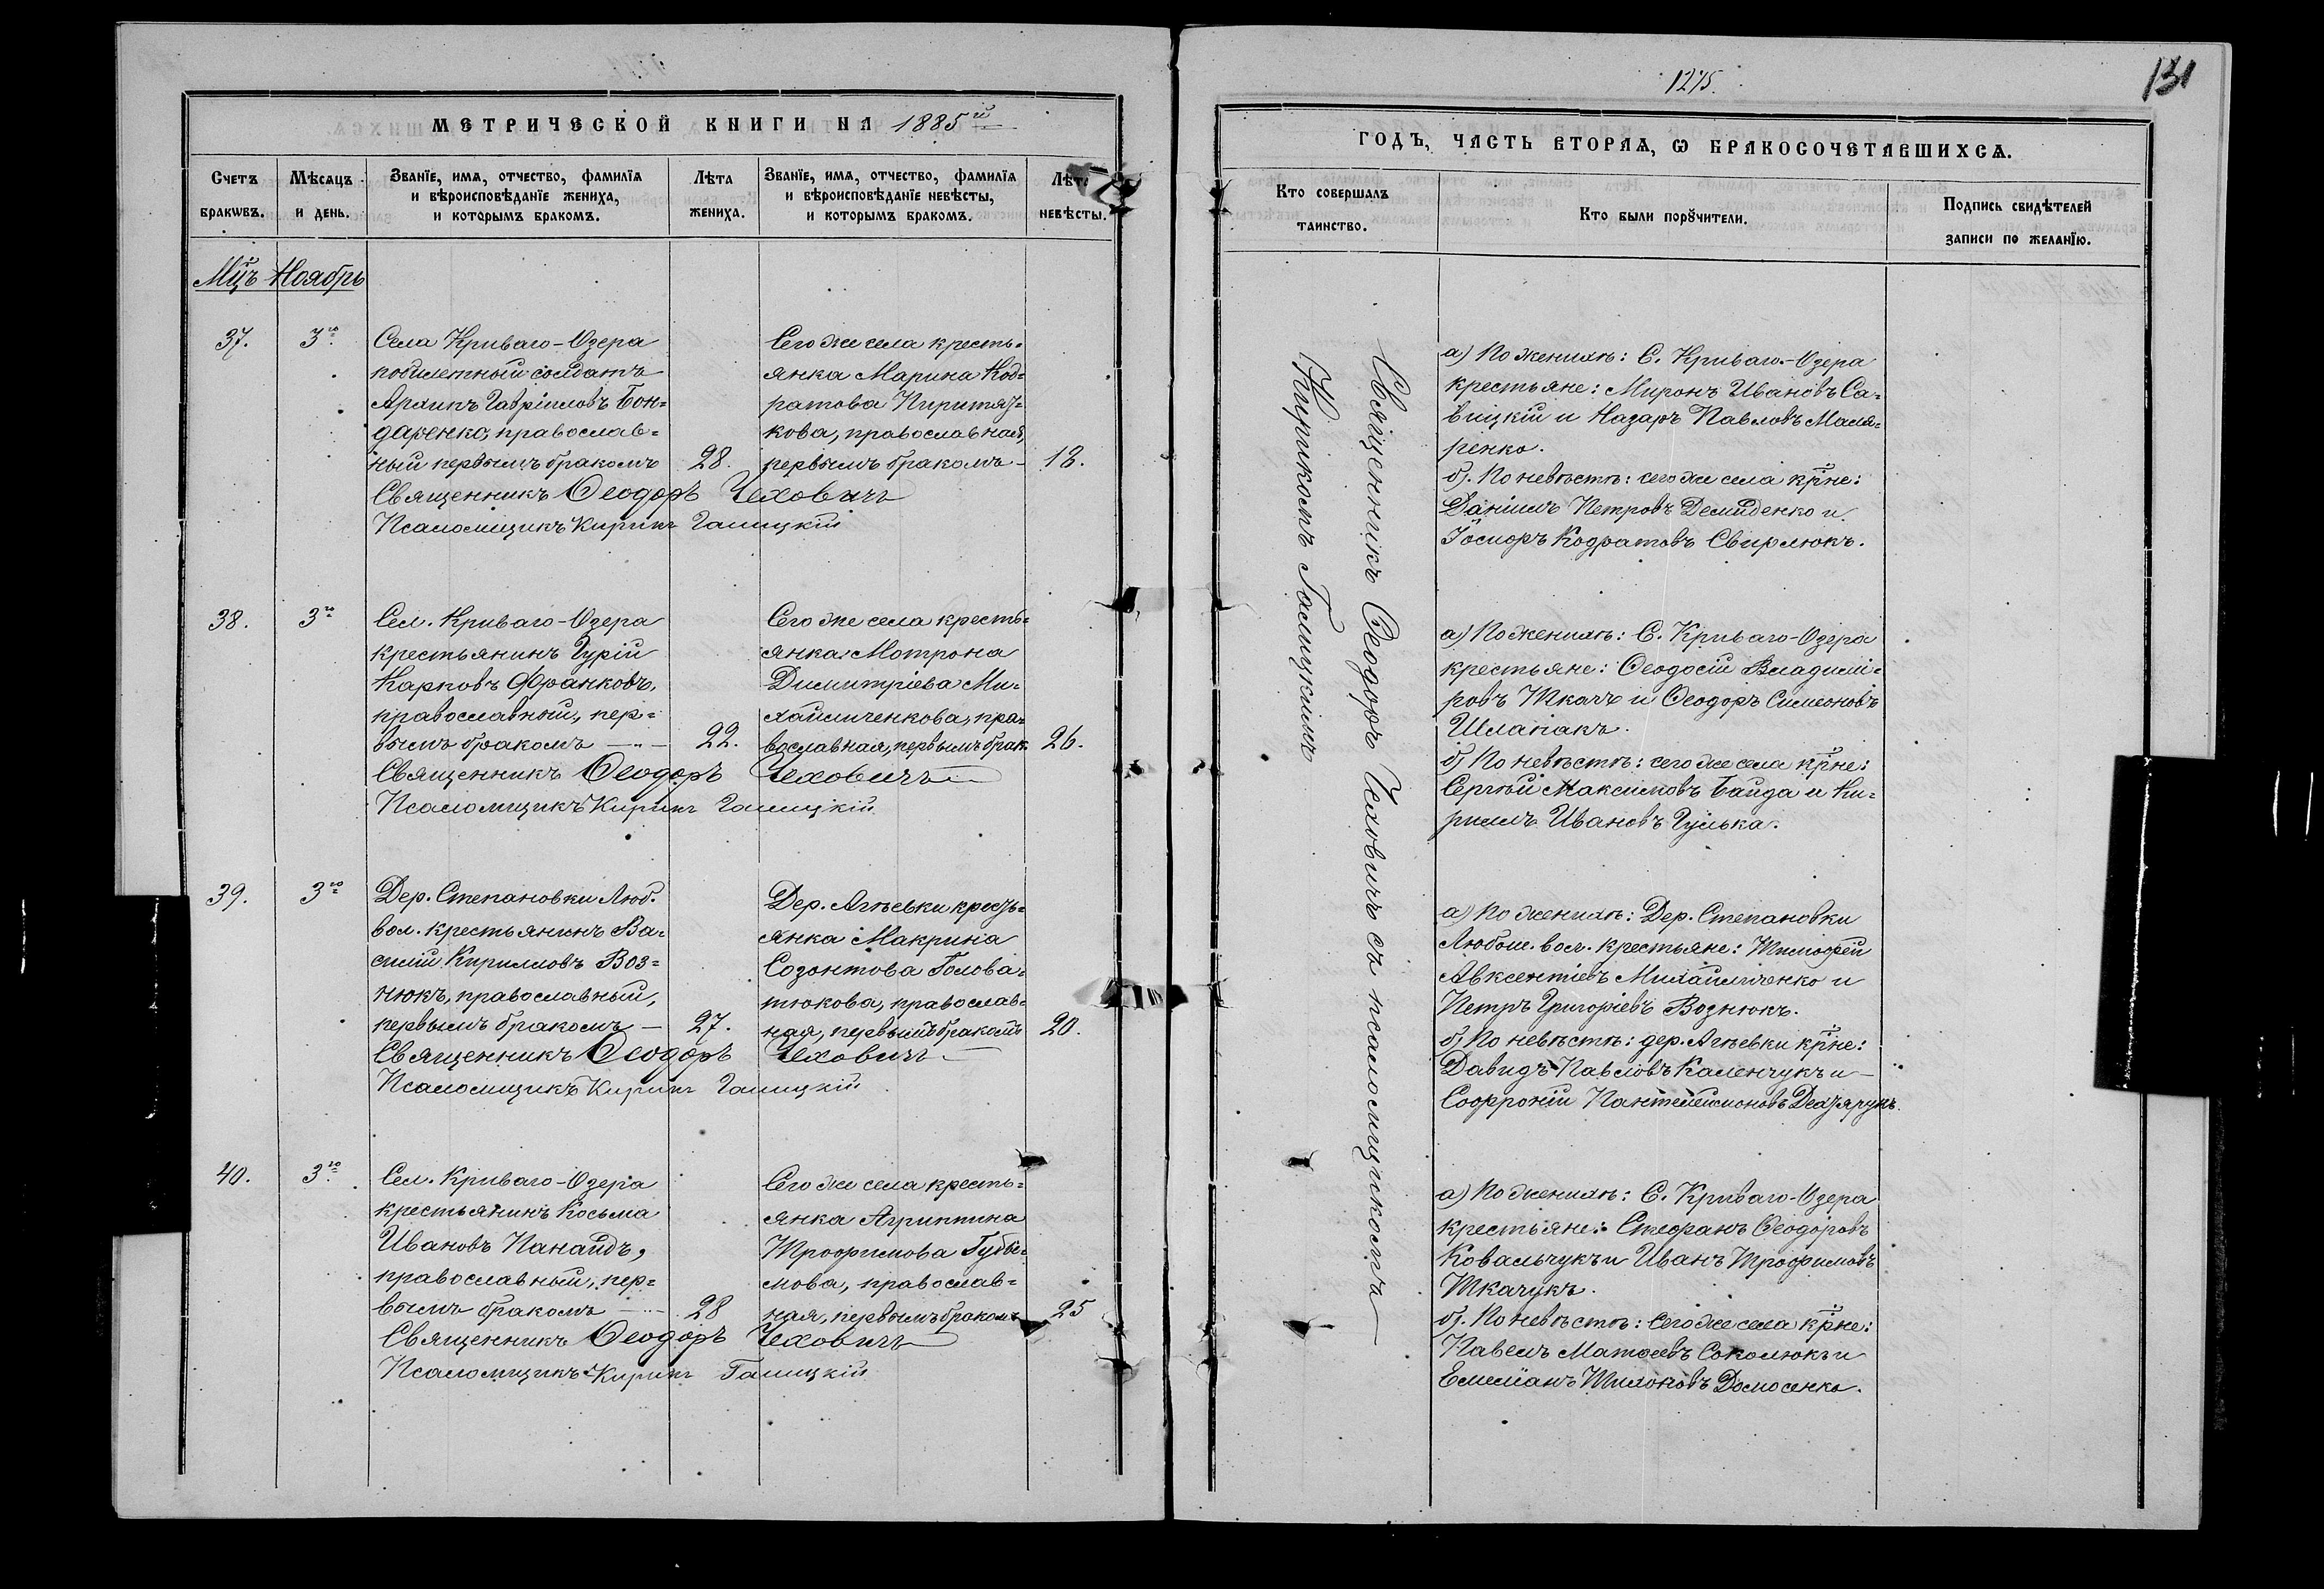 МЕТРИЧЕСКОЙ КНИГИ НА 1885й
Счетъ браковъ.
Мѣсяцъ и день.
Званїе, имѧ, отчество, фамилїѧ и вѣроисповѣданїе жениха, и которымъ бракомъ.
Лѣта жениха.
Званїе, имѧ, отчество, фамилїѧ и вѣроисповѣданїе невѣсты, и которымъ бракомъ.
Лѣта невѣсты.
Мцъ Ноябрь
37.
3го
Села Криваго-Озера
побилетный солдатъ
Архипъ Гавріиловъ Бон=
даренко, православ=
ный первымъ бракомъ
28.
Сего же села кресть=
янка Марина Код=
ратова
кова, православная,
первымъ бракомъ –
18.
Священникъ Ѳеодоръ Чеховичъ
Псаломщикъ Кирикъ Галицкій
38.
3го
Сел. Криваго-Озера
крестьянинъ Гурій
Карповъ Франковъ,
православный, пер=
вымъ бракомъ –"–
22.
Сего же села кресть=
янка Мотрона
Димитріева Ми=
хайличенкова, пра=
вославная, первымъ брак.
26.
Священникъ Ѳеодоръ Чеховичъ
Псаломщикъ Кирикъ Галицкій
39.
3го
Дер. Степановки Люб.
вол. крестьянинъ Ва=
силій Кирилловъ Воз=
нюкъ, православный,
первымъ бракомъ –
27.
Дер. Агѣевки кресть=
янка Макрина
Созонтова Голова=
тюкова, православ=
ная, первымъ бракомъ
20.
Священникъ Ѳеодоръ Чеховичъ
Псаломщикъ Кирикъ Галицкій
40.
3го
Сел. Криваго-Озера
крестьянинъ Косьма
Ивановъ Панаидъ,
православный, пер=
вымъ бракомъ –"–
28
Сего же села кресть=
янка Агриппина
Трофимова
мова, православ=
ная, первымъ бракомъ
25
Священникъ Ѳеодоръ Чеховичъ
Псаломщикъ Кирикъ Галицкій
1275.
131
ГОДЪ, ЧАСТЬ ВТОРАѦ, Ѡ БРАКОСОЧЕТАВШИХСѦ.
Кто совершалъ таинство.
Кто были порꙋчители.
Подпись свидѣтелей записи по желанїю.
Священникъ Ѳеодоръ Чеховичъ съ псаломщикомъ
Кирикомъ Галицкимъ
а) По женихѣ: С. Криваго-Озера
крестьяне: Миронъ Ивановъ Са=
вицкій и Назаръ Павловъ Маля=
ренко.
б). По невѣстѣ: сего же села крне:
Даніилъ Петровъ Демиденко и
Іосифъ Кодратовъ Свирлюкъ.
а) По женихѣ: С. Криваго-Озера
крестьяне: Ѳеодосій Владимі=
ровъ Ткачъ и Ѳеодоръ Симеоновъ
Шлапакъ.
б) По невѣстѣ: сего же села крне:
Сергѣй Максимовъ Байда и Ки=
риллъ Ивановъ Гулька.
а) По женихѣ: Дер. Степановки
Любом. вол. крестьяне: Тимофей
Авксентіевъ Михайличенко и
Петръ Григоріевъ Вознюкъ.
б) По невѣстѣ: дер. Агѣевки крне:
Давидъ Павловъ Каленчукъ и
Софроній Пантелеимоновъ Дехтярукъ.
а) По женихѣ: С. Криваго-Озера
крестьяне: Стефанъ Ѳеодоровъ
Ковальчукъ и Иванъ Трофимовъ
Ткачукъ.
б). По невѣстѣ: Сего же села крне:
Павелъ Матѳеевъ Соколюкъ и
Емеліанъ Тихоновъ